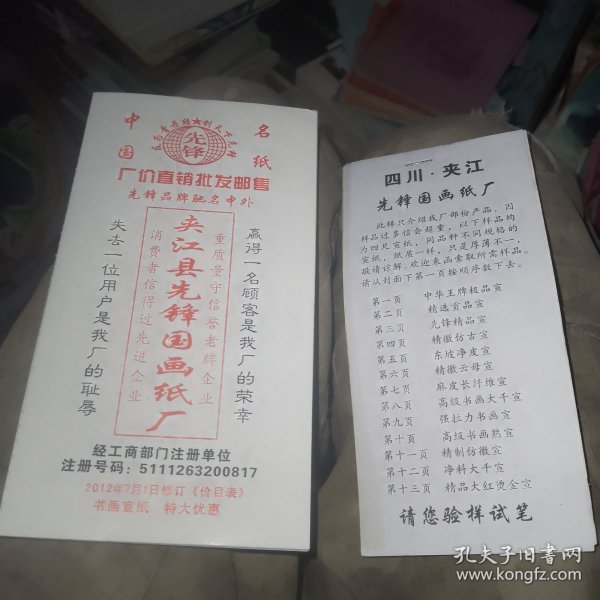 中国
名纸
先锋
厂价直销批发邮售
先锋品牌驰名中外
赢得一名顾客是我厂的荣幸
重质量守信誉老牌企业
夹江县先锋国画纸厂
消费者信得过先进企业
失去一位用户是我厂的耻辱
经工商部门注册单位
注册号码：5111263200817
2012年7月1日修订《价目表》
书画宣纸 特大优惠
四川·夹江
先锋国画纸厂
此样只介绍我厂部份产品，因
样品过多信会超重，以下样品均
为四尺宣纸，同品种不同规格的
宣纸，纸质一样，只是厚薄不一，
敬请谅解。欢迎来函索取所需样品。
请从封面下第一页按顺序数下去。
第一页 中华王牌极品宣
第二页 精选贡品宣
第三页 先锋精品宣
第四页 精徽仿古宣
第五页 东坡净皮宣
第六页 精徽云母宣
第七页 麻皮长纤维宣
第八页 高级书画大千宣
第九页 强拉力书画宣
第十页 高级书画熟宣
第十一页 精制仿徽宣
第十二页 净料大千宣
第十三页 精品大红烫金宣
请您验样试笔
孔夫子旧书网
www.kongfz.com